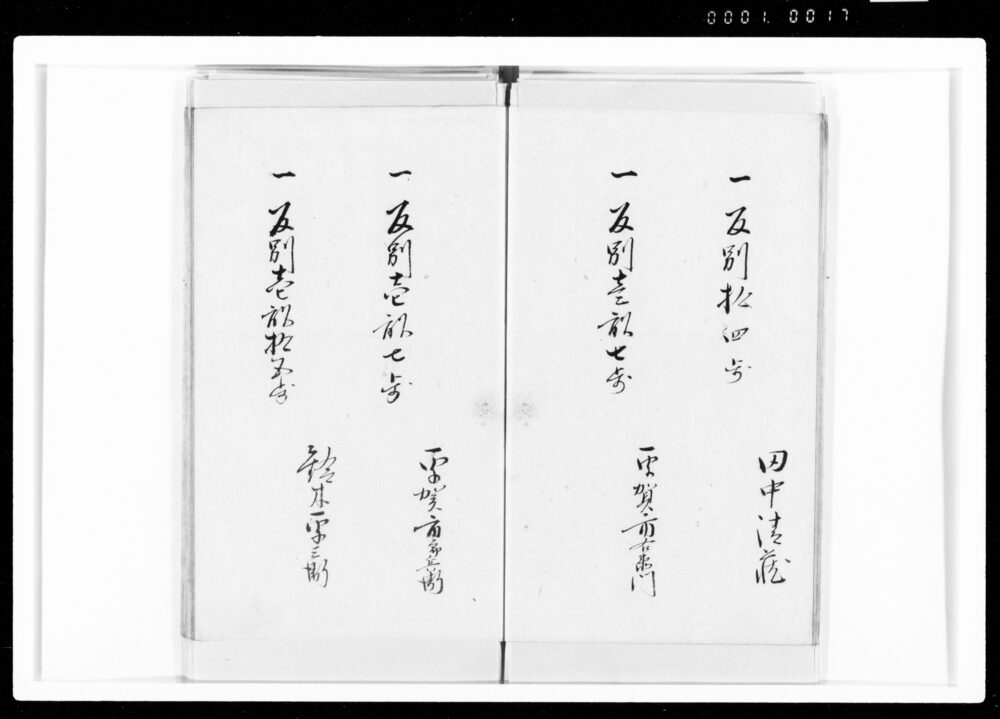 0001.0017
一 反別拾四歩
田中清蔵
一 反別壱畝七歩
平賀市右衛門
一 反別壱畝七歩
平賀市郎兵衛
一 反別壱畝拾五歩
鈴木平三衛